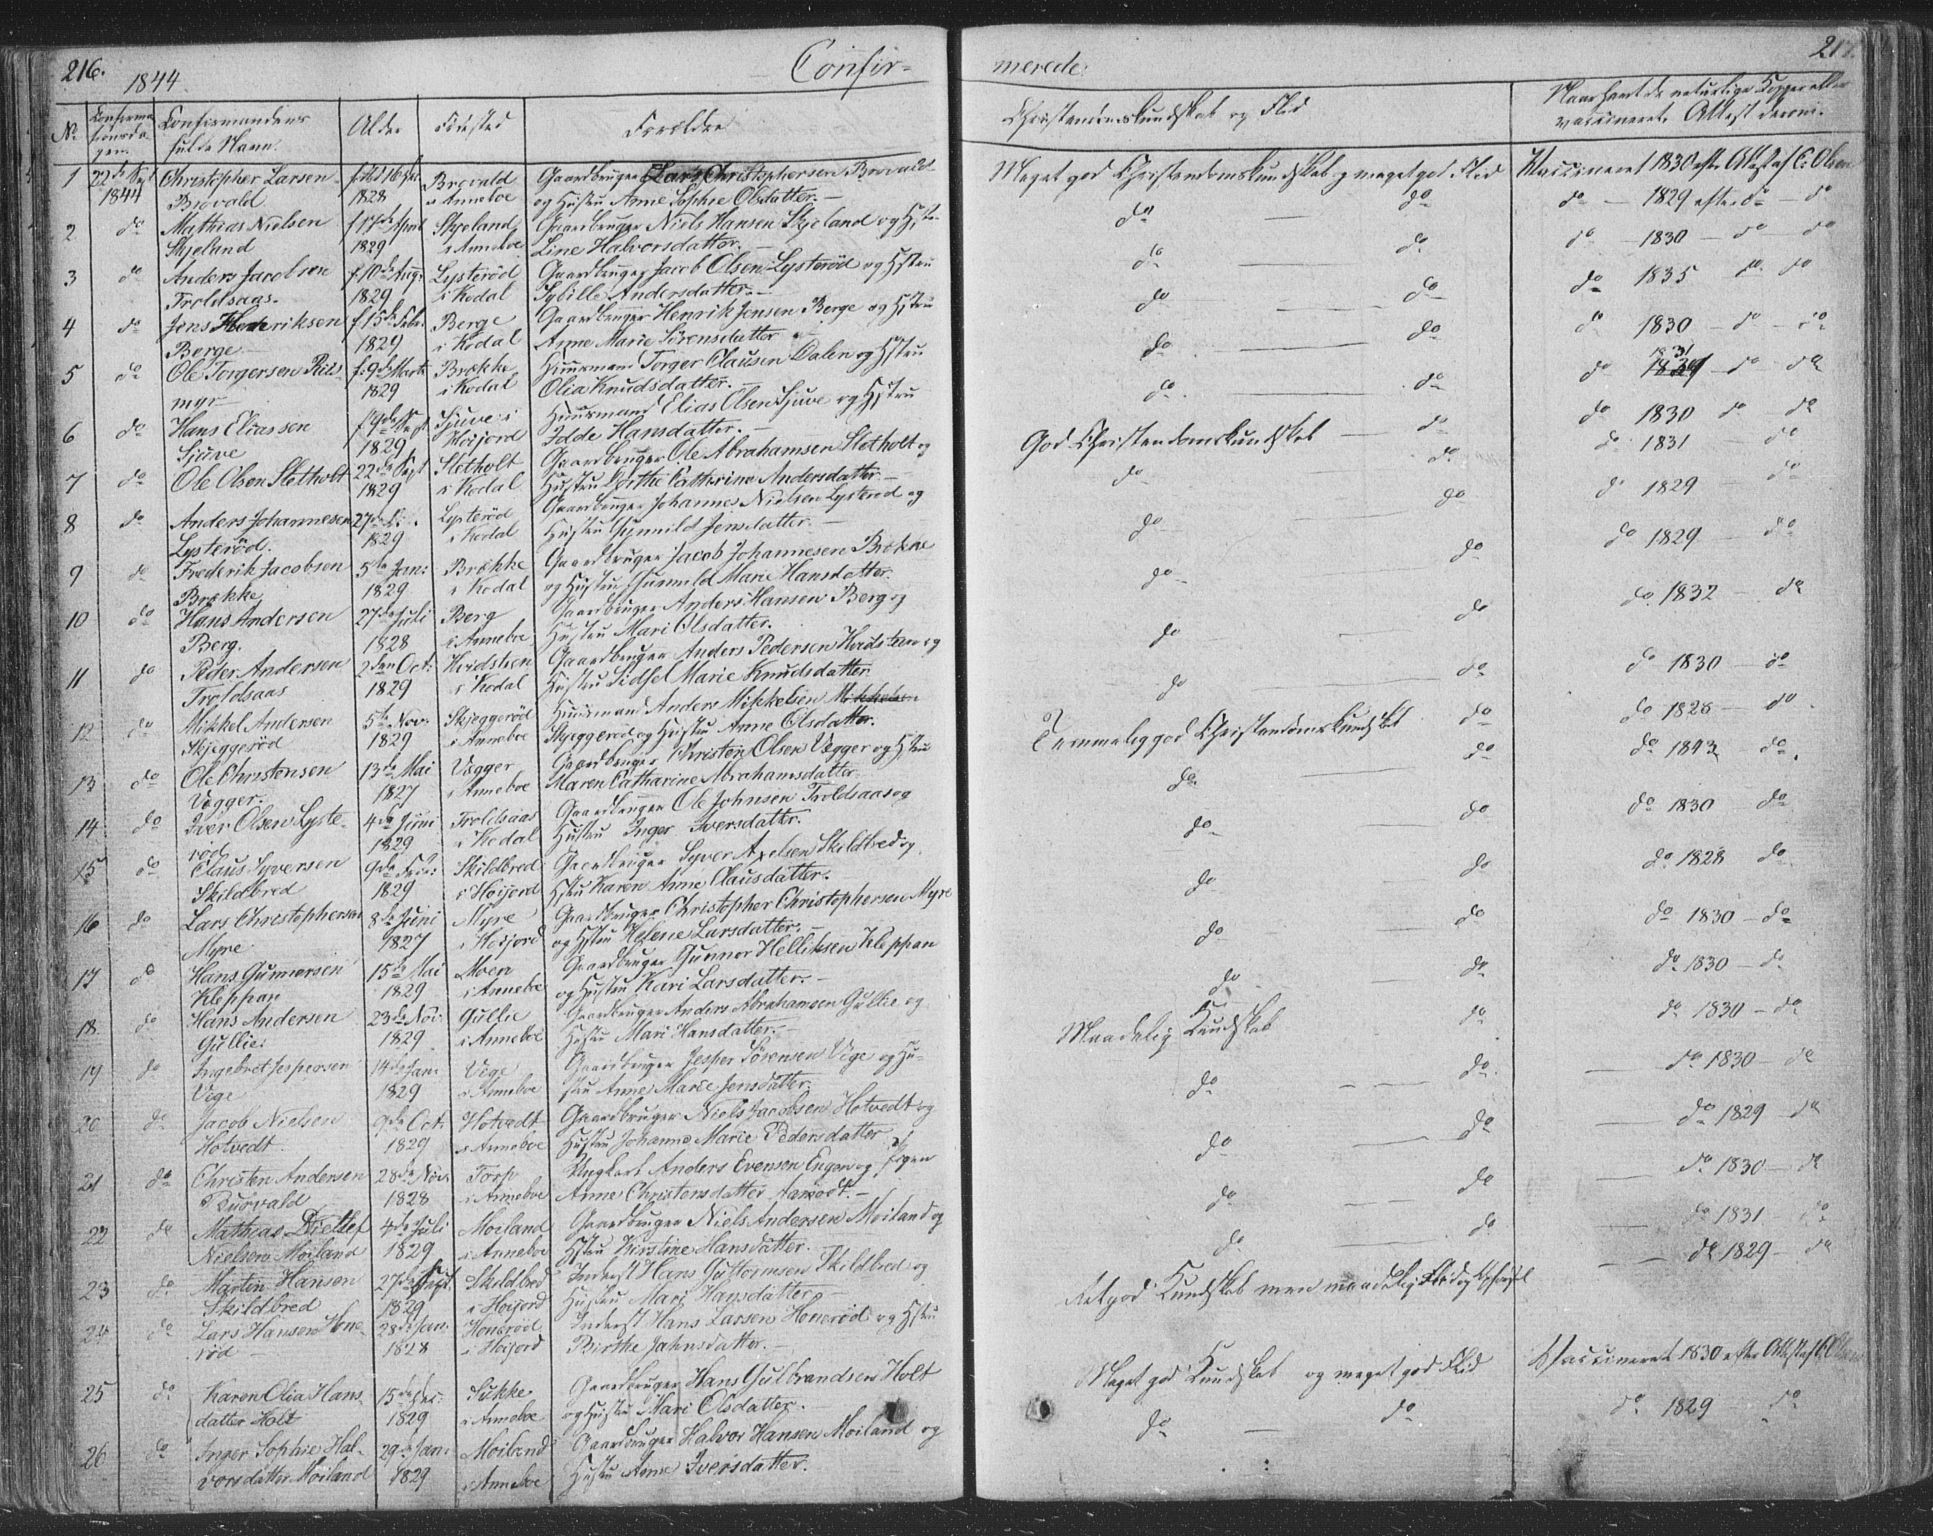 216.
1844.
Confir-
No.
Confirma
tionsda
gen.
Confirmandens
fulde Navn.
Alder
Fødested
Forældre
1 22de Sept Christopher Larsen Brøvald Gaardbruger Lars Christophersen Brøvald
1844 Brøvald 1828 i Anneboe og Hustru Anne Sophie Olsdatter.
2 do Mathias Nielsen f 17de April Skjeland Gaardbruger Niels Hansen Skjeland og Hst.
Skjeland 1829 i Anneboe Line Halvorsdatter.
3 do Anders Jacobsen f 10de Aug. Lysterød Gaardbruger Jacob Olsen Lysterød og Hstru
Troldsaas. 1829 i Kodal Sybille Andersdatter.
4 do Jens Henriksen f 15de Febr. Berge Gaardbruger Henrik Jensen Berge og Hstru
Berge 1829 i Kodal Anne Marie Sørensdatter
5 do Ole Torgersen Riis- f. 9de Marts Brække Huusmand Torger Clausen Dalen og Hstru
myr 1829 i Kodal Olia Knudsdatter.
6 do Hans Eliassen f 9de Sept Sjuve i Huusmand Elias Olsen Sjuve og Hstru
Sjuve 1829 Høijord Idde Hansdatter.
7 do Ole Olsen Slotholt 22de Sept Slotholt Gaardbruger Ole Abrahamsen Slotholt og
1829 i Kodal Hustru Dorthe Catherine Andersdatter
8 do Anders Johannesen 27de Lysterød Gaardbruger Johannes Nielsen Lysterød og
Lysterød. 1829 i Kodal Hustru Gunnild Jensdatter.
9 do Frederik Jacobsen 5te Jan: Brække Gaardbruger Jacob Johannesen Brække
Brække 1829 i Kodal og Hustru Gunnild Marie Hansdatter.
10 do Hans Andersen 27de Juli Berg Gaardbruger Anders Hansen Berg og
Berg. 1828 i Anneboe Hustru Mari Olsdatter.
11 do Peder Andersen 2den Oct: Hvidsteen Gaardbruger Anders Pedersen Hvidsteen og
Troldsaas 1829 i Kodal Hustru Sidsel Marie Knudsdatter
12 do Mikkel Andersen 5te Nov: Skjeggerød Huusmand Anders Mikkelsen Mikkelsen
Skjeggerød 1829 i Anneboe Skjeggerød og Hustru Anne Olsdatter.
13 do Ole Christensen 13de Mai Vegger Gaardbruger Christen Olsen Vegger og Hstru
Vegger. 1827 i Anneboe Maren Catharine Abrahamsdatter
14 do Iver Olsen Lyste- 4de Juni Troldsaas Gaardbruger Ole Johnsen Troldsaas og
rød 1829 i Kodal Hustru Inger Iversdatter.
15 do Claus Syversen 9de Skildbred Gaardbruger Syver Axelsen Skildbred og
Skildbred 1829 i Høijord Hstru Karen Anne Clausdatter.
16 do Lars Christophersen 8de Juni Myre Gaardbruger Christopher Christophersen Myre
Myre 1827 i Høijord og Hstru Helene Larsdatter.
17 do Hans Gunnorsen 15de Mai Moen Gaardbruger Gunnor Helliksen Kleppan
Kleppan 1829 i Anneboe og Hustru Kari Larsdatter.
18 do Hans Andersen 23de Nov: Gullie Gaardbruger Anders Abrahamsen Gullie og
Gullie: 1829 i Anneboe Hustru Mari Hansdatter.
19 do Ingebret Jespersen 14de Jan: Vege Gaardbruger Jesper Sørensen Vege og Hu-
Vege 1829 i Anneboe stru Anne Marie Jensdatter.
20 do Jacob Nielsen 9de Oct. Hotvedt Gaardbruger Niels Jacobsen Hotvedt og
Hotvedt. 1829 i Anneboe Hustru Johanne Marie Pedersdatter
21 do Christen Andersen 28de Nov: Torp Ungkarl Anders Evensen Engen og Pigen
1828 i Anneboe Anne Christensdatter Aamodt.
22 do Mathias Dietlef 4de Juli Moiland Gaardbruger Niels Andersen Moiland og
Nielsen Moiland 1829 i Anneboe Hstru Kirstine Hansdatter.
23 do Martin Hansen 27de Sept. Skildbred Inderst Hans Guttormsen Skildbred og
Skildbred 1829 i Høijord Hustru Mari Hansdatter
24 do Lars Hansen Hone- 28de Jan: Honerød Inderst Hans Larsen Honerød og Hstru
rød 1828 i Høijord Birthe Jahnsdatter.
25 do Karen Olia Hans- 15de Dec: Sukke Gaardbruger Hans Gulbrandsen Holt
datter Holt 1829 i Anneboe og Hustru Mari Olsdatter.
26 do Inger Sophie Hal- 29de Jan: Moiland Gaardbruger Halvor Hansen Moiland og
vorsdatter Moiland 1829 i Anneboe Hustru Anne Iversdatter.
217.
merede.
Christendomskundskab og Flid
Naar havt de naturlige Kopper eller
vaccineret. Attest derom.
Meget god Christendomskundskab og meget god Flid Vaccineret 1830 efter Attest af C: Olsen
do do do 1829 efter do do
do do do 1830 do do
do do do 1835 do do
do do do 1830 do do
do do do 1831 do do
God Christendomskundskab do do 1830 do do
do do do 1831 do
do do do 1829 do
do do do 1829 do
do do do 1832 do
do do do 1830 do
Temmelig god Christendomskundskab do do 1828 do
do do do 1843 do.
do do do 1830 do
do do do 1828 do
do do do 1830 do
do do do 1830 do
Maadelig Kundskab do do 1830 do
do do do 1830 do
do do do 1829 do
do do do 1830 do
do do do 1831 do
do 1829 do
Ret god Kundskab men maadelig Flid og Opførsel
Meget god Kundskab og meget god Flid Vaccineret 1830 efter Attest af C: Olsen
do do do 1829 do